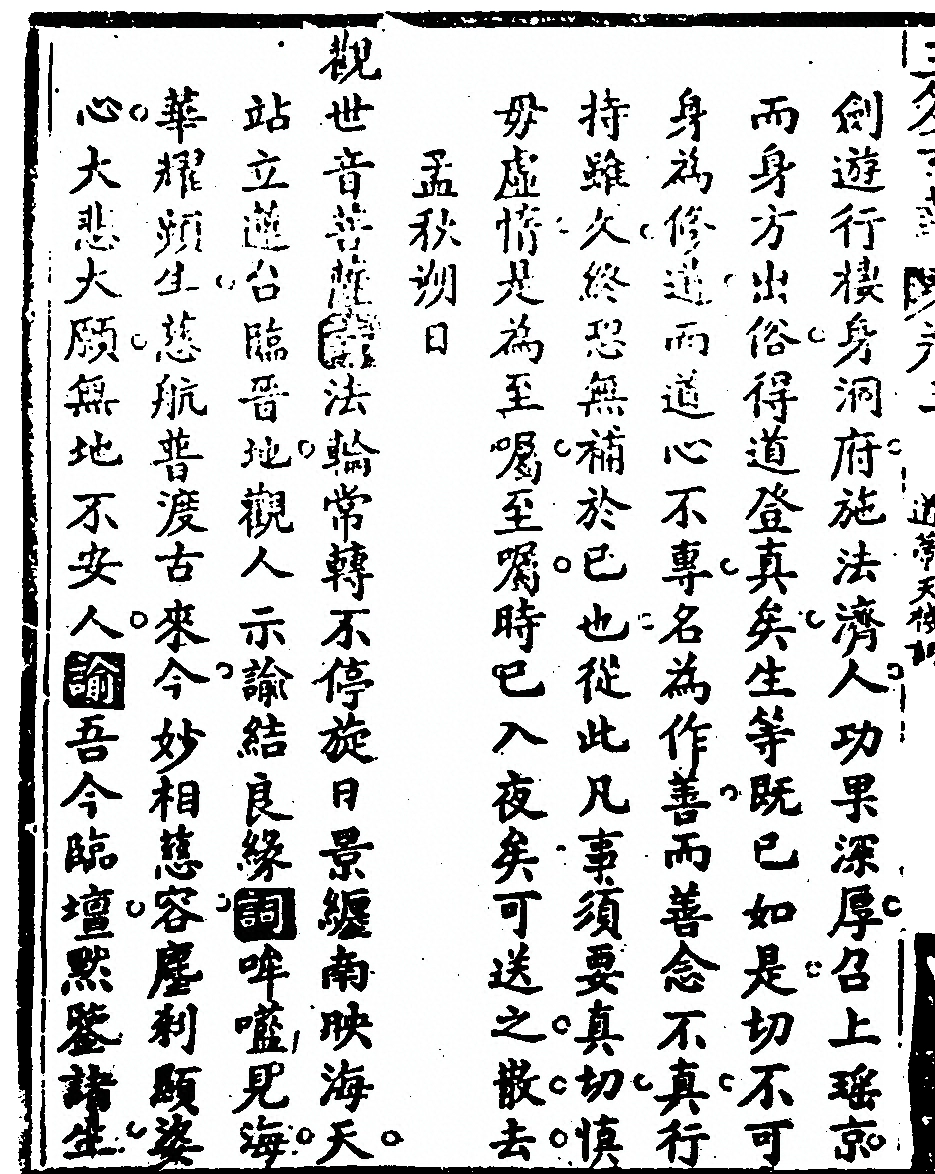 劍遊行棲身洞府施法濟人功果深厚召上瑤京
而身方出俗得道登真矣生等既已如是切不可
身為修道而道心不專名為作善而善念不真行
持雖久終恐無補於已也從此凡事須要真切慎
毋虛惰是為至囑至囑時已入夜矣可送之散去
孟秋朔日
觀世音菩薩詩法輪常轉不停旋日景纏南映海天
站立蓮台臨晉地觀人示諭結良緣詞哞囈見海
華耀頻生慈航普渡古來今妙相慈容塵剎顯婆
心大悲大願無地不安人諭吾今臨壇默鑒諸生